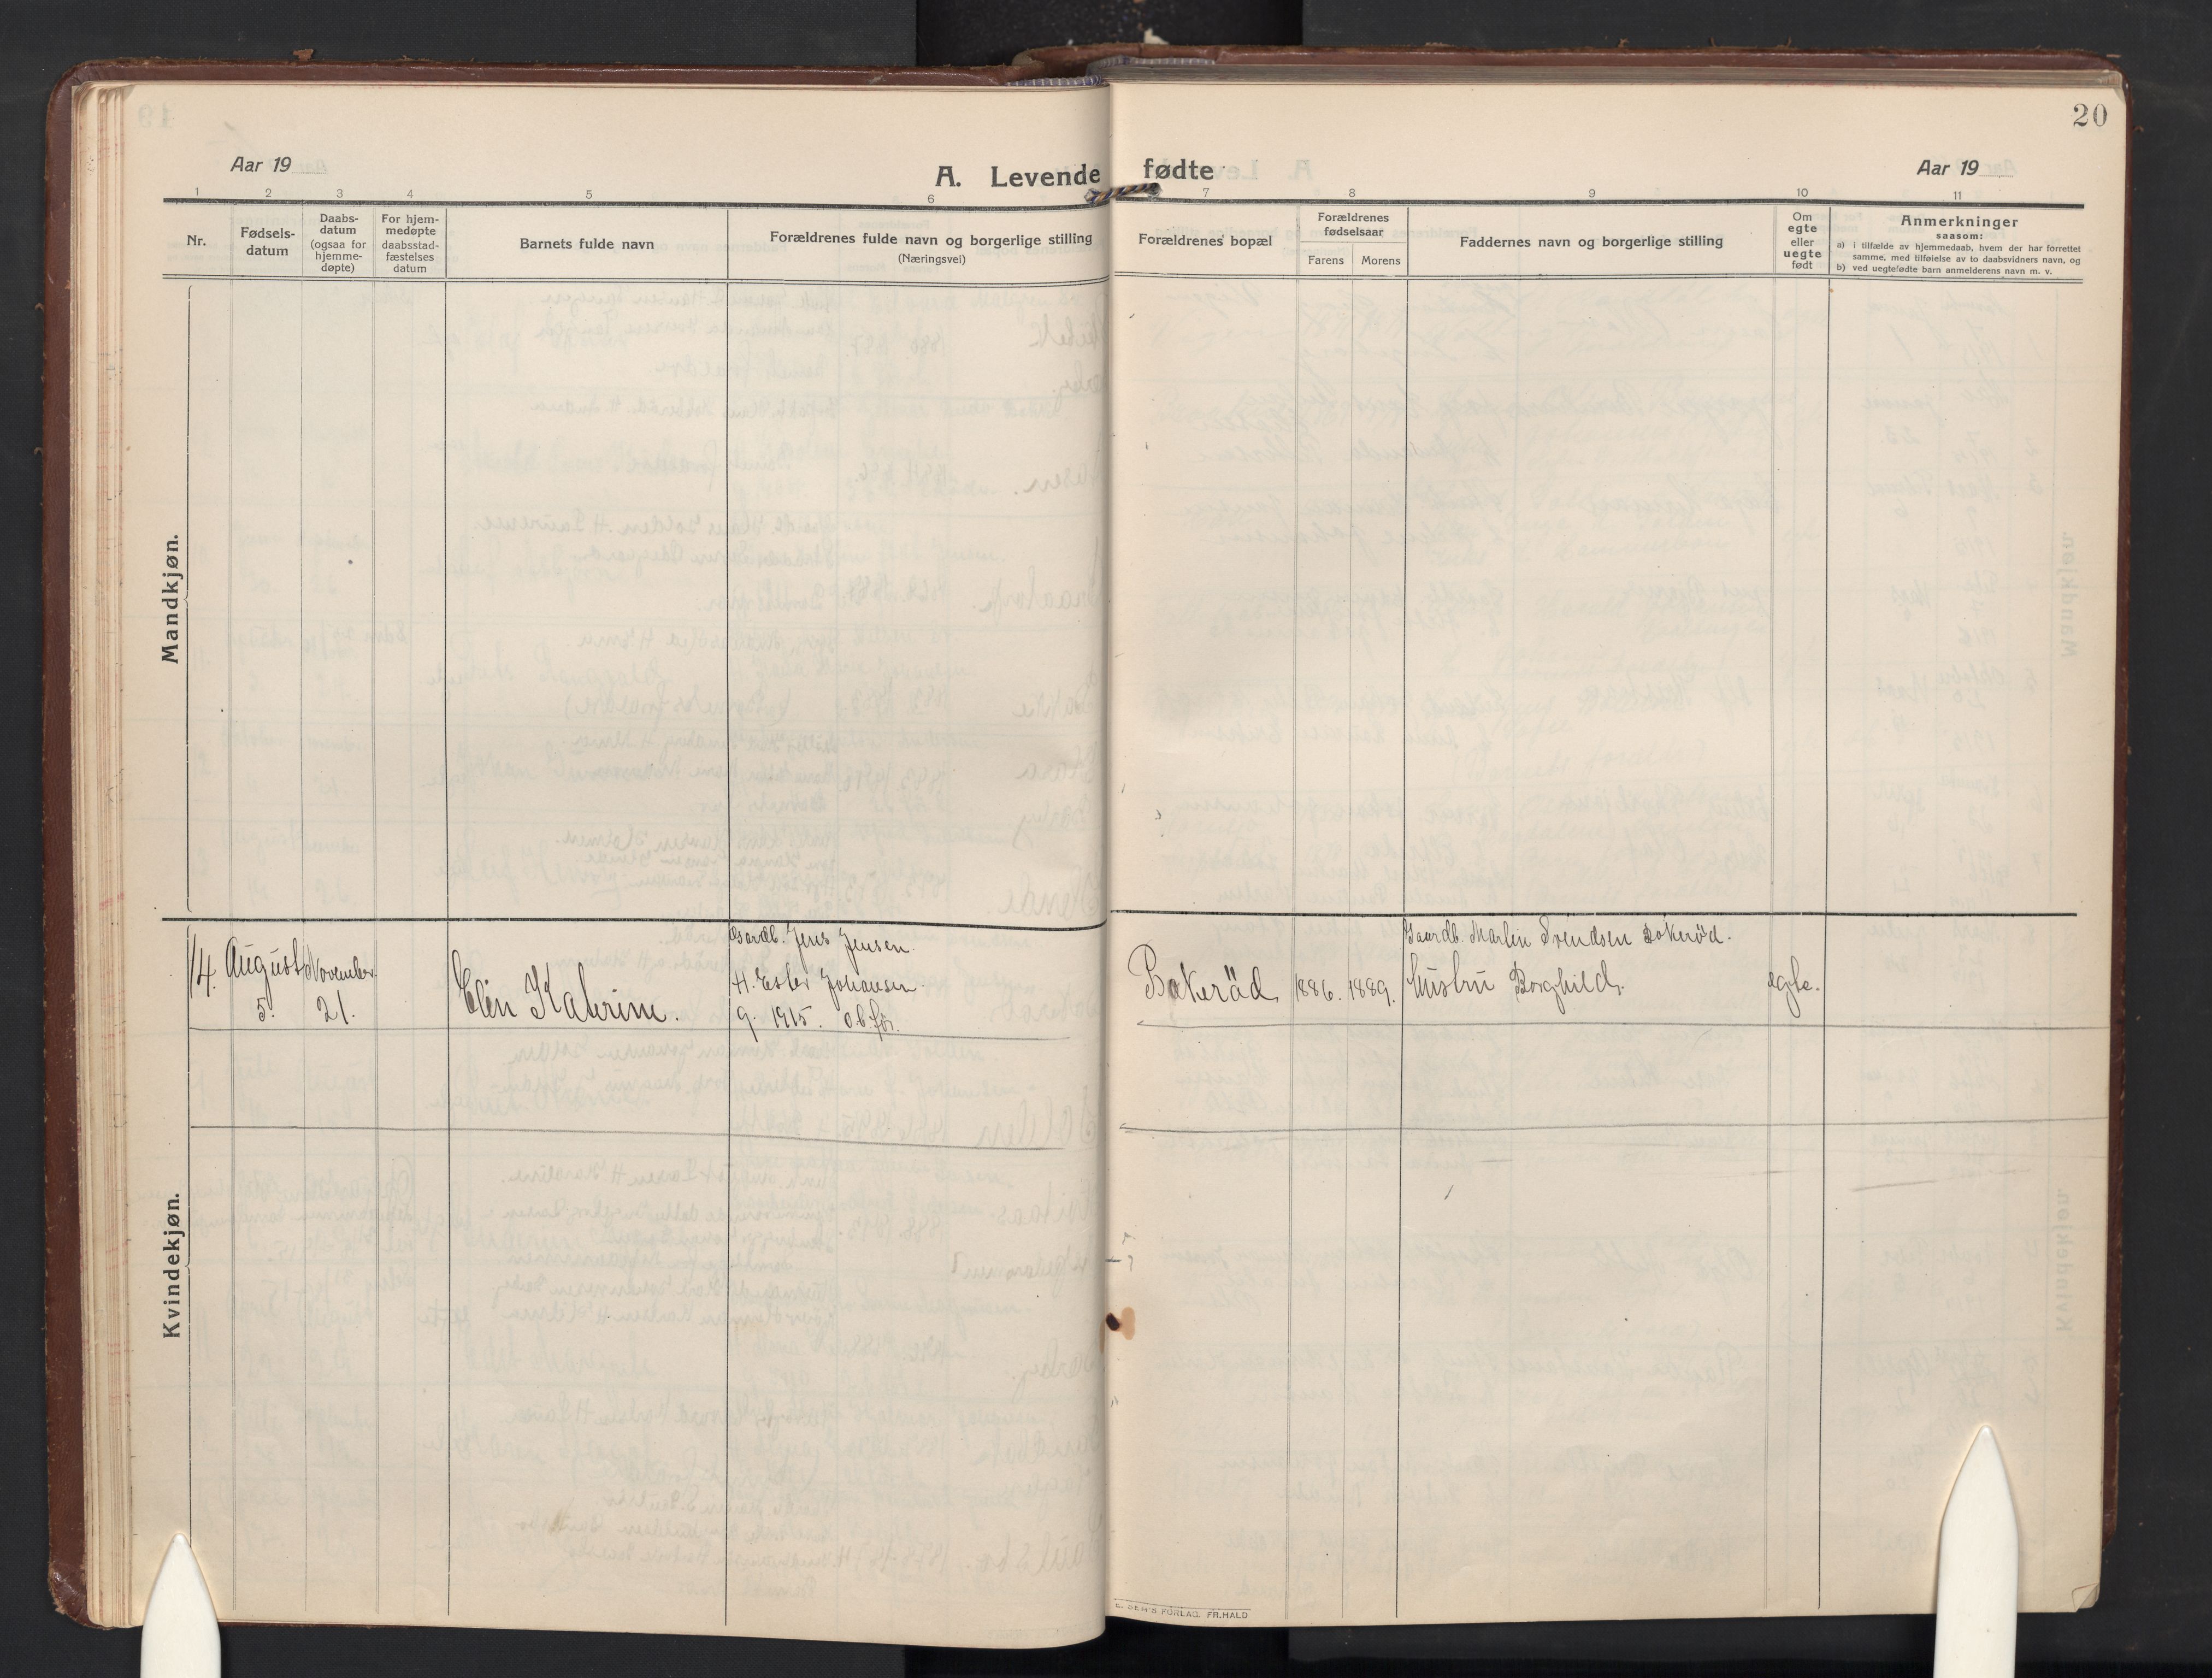 20
Aar 19
A. Levende fødte
Aar 19
1 2 3 4 5 6 7 8 9 10 11
Nr.
Fødsels-
datum
Daabs-
datum
(ogsaa for
hjemme-
døpte)
For hjem-
medøpte
daabsstad-
fæstelses
datum
Barnets fulde navn
Forældrenes fulde navn og borgerlige stilling
(Næringsvei)
Forældrenes bopæl
Forældrenes
fødselsaar
Farens
Morens
Faddernes navn og borgerlige stilling
Om
egte
eller
uegte
født
Anmerkninger
saasom:
a) i tilfælde av hjemmedaab, hvem der har forrettet
samme, med tilføielse av to daabsvidners navn, og
b) ved uegtefødte barn anmelderens navn m. v.
Mandkjøn.
Kvindekjøn.
14.
August
5.
November
21.
Elin Katerine.
Gaardb. Jens Jensen.
H. Ester Johansen.
g. 1915. o.b.før.
Bokeröd
1886.
1889.
Gaardb. Martin Svendsen Bokeröd.
Hustru Borghild.
egte.
SEN'S FORLAG. FR.HALD